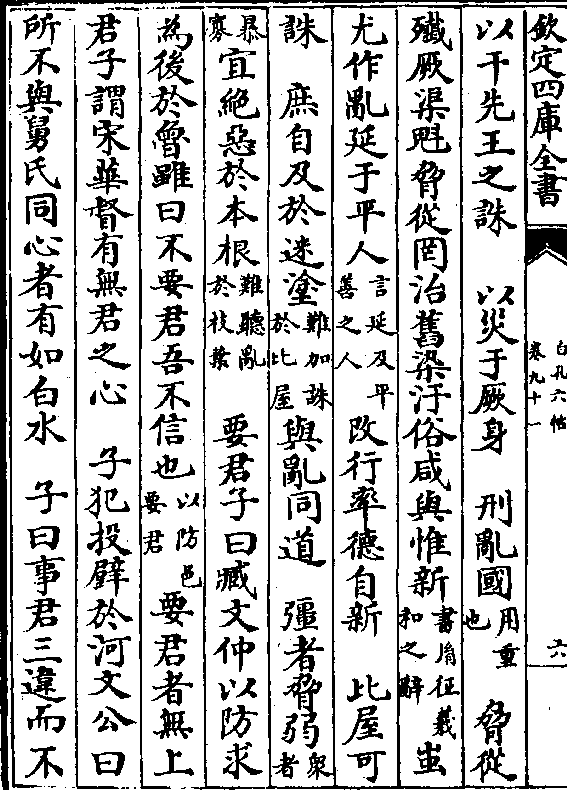 欽定四庫全書
白孔六帖
卷九十一
六
以干先王之誅　以災于厥身　刑亂國用重也　脅從
殲厥渠魁脅從罔治舊染汙俗咸與惟新書胤征羲和之辭　蚩
尤作亂延于平人言延及平善之人　改行率德自新　比屋可
誅　庶自及於迷塗難加誅於比屋與亂同道　彊者脅弱衆者
暴寡　宜絶惡於本根難聽亂於枝葉　要君子曰臧文仲以防求
為後於魯雖曰不要君吾不信也以防邑要君　要君者無上
君子謂宋華督有無君之心　子犯投璧於河文公曰
所不與舅氏同心者有如白水　子曰事君三違而不